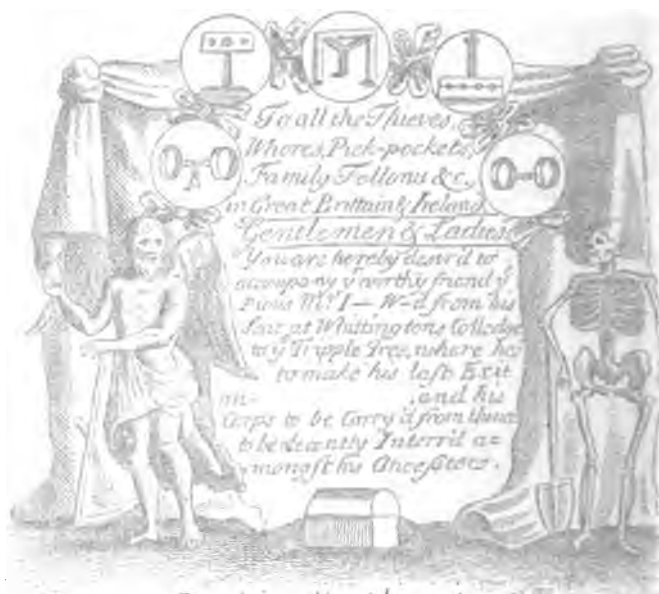 To all the Thieves,
Whores, Pick-pockets,
Family Fellons &c,
in Great Brittain & Ireland
Gentlemen & Ladies
You are hereby desir'd to
accompany yͤ worthy friend yͤ
Pious Mͬ I— W—d from his
Seat at Whittingtons Colledge
to yͤ Tripple Tree, where he's
to make his last Exit
on , and his
Corps to be Carry'd from thence
to be decently Interr'd a=
mongst his Ancestors.